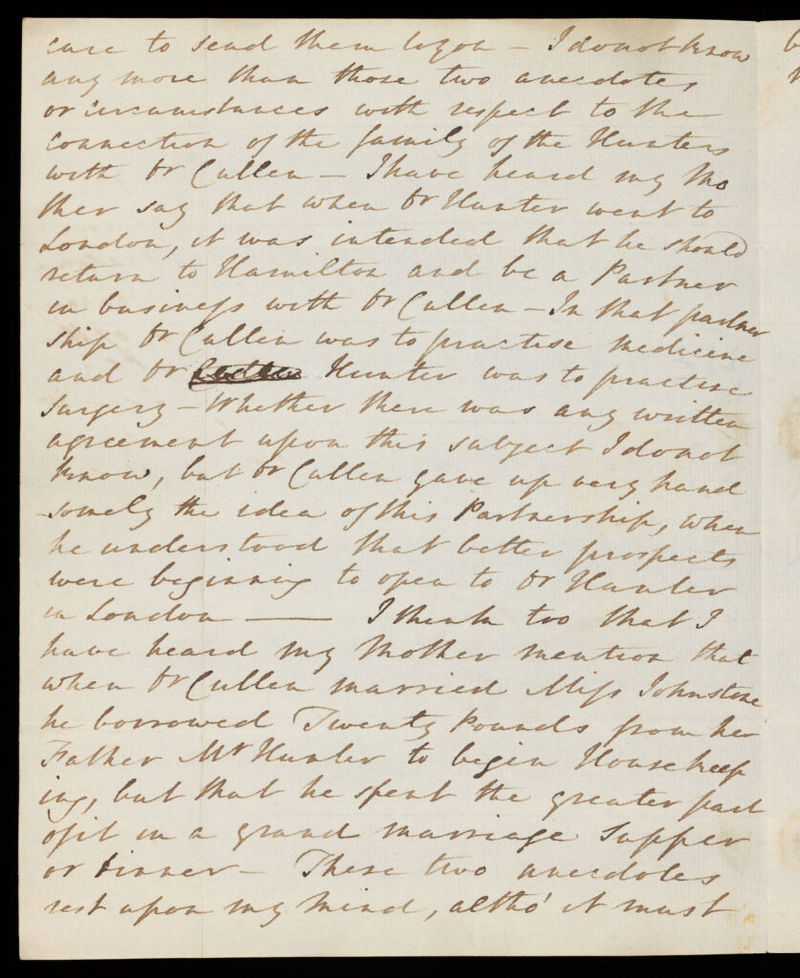 care to send them to you — I do not know
any more than those two anecdotes
or circumstances with respect to the
connection of the family of the Hunters
with Dr Cullen — I have heard my Mo
ther say that when Dr Hunter went to
London, it was intended that he should
return to Hamilton and be a Partner
in business with Dr Cullen — In that partner
ship Dr Cullen was to practise medicine
and Dr Hunter was to practise
Surgery — Whether there was any written
agreement upon this subject I do not
know, but Dr Cullen gave up very hand
-somely the idea of this Partnership, when
he understood that better prospects
were beginning to open to Dr Hunter
in London — I think too that I
have heard my Mother mention that
when Dr Cullen married Miss Johnstone
he borrowed Twenty Pounds from her
Father Mr Hunter to begin Housekeep
ing, but that he spent the greater part
of it in a grand marriage Supper
or dinner — These two anecdotes
rest upon my mind, altho' it must